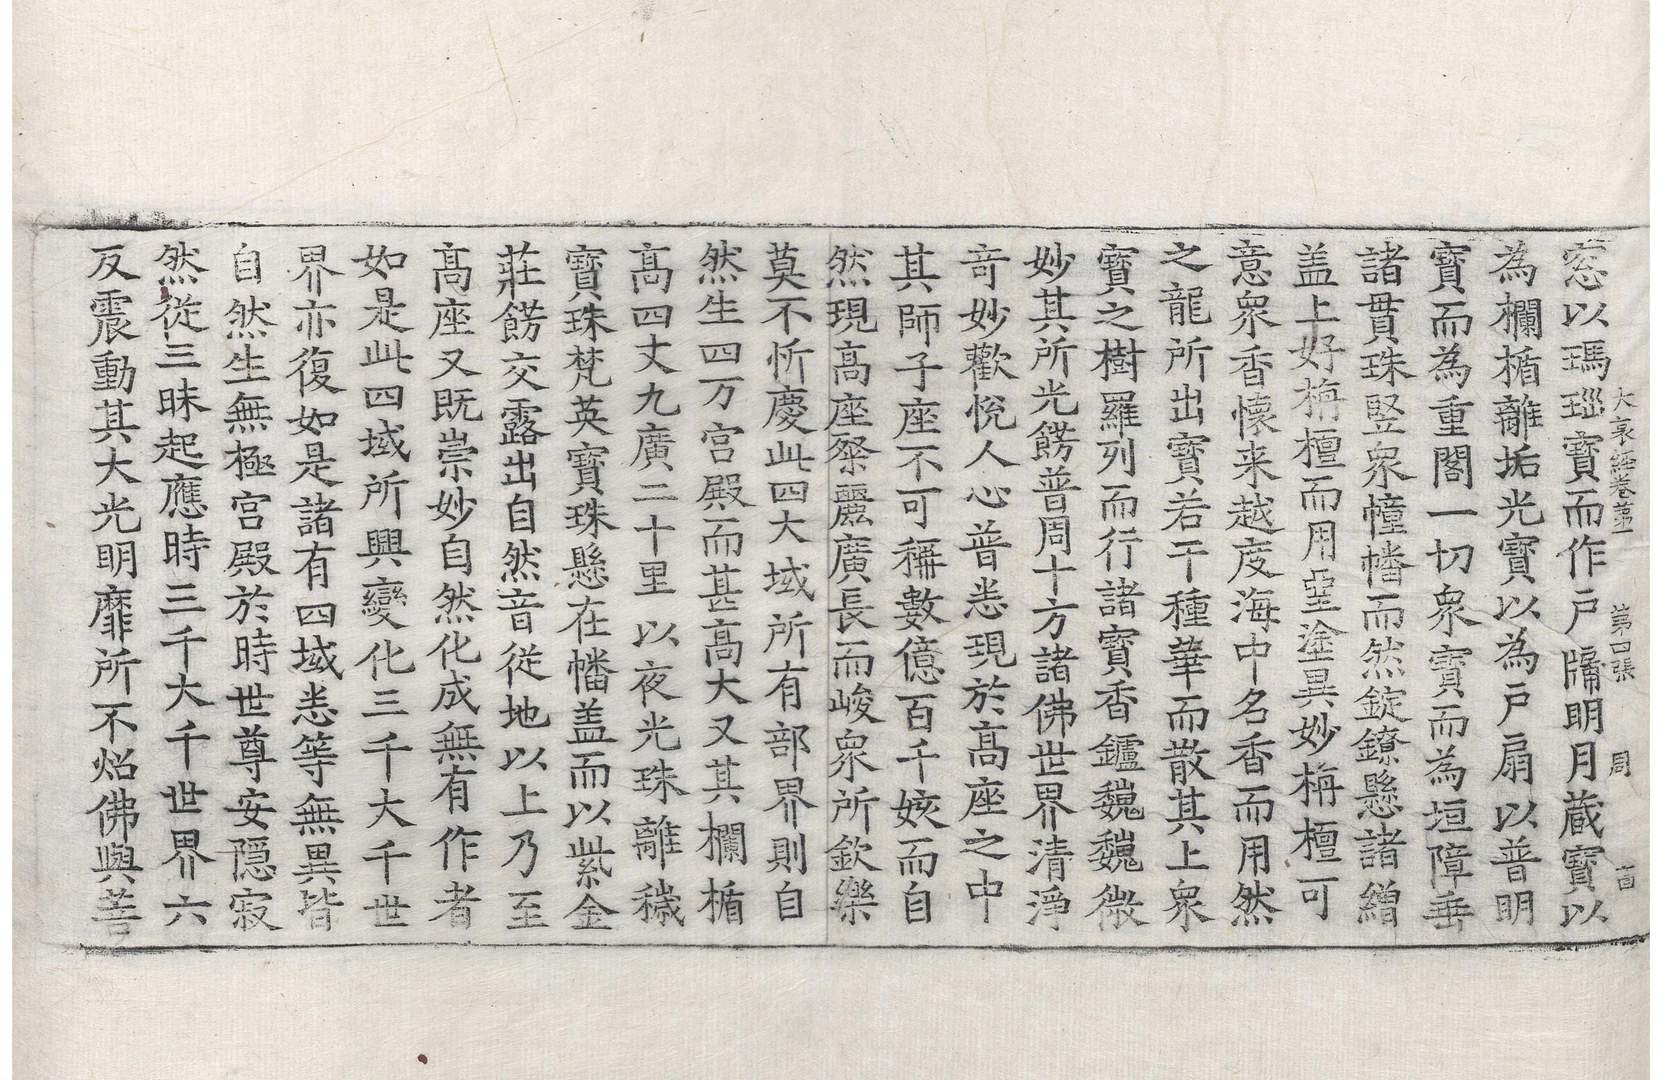 大哀經卷第一　第四張　周
窓以瑪瑙寶而作戶牖明月蔵寶以
為欄楯離垢光寶以為戶扇以普明
寶而為重閣一切衆寶而為垣障垂
諸貫珠竪衆幢幡而然錠鐐懸諸繒
盖上好栴檀而用堊塗異妙栴檀可
意衆香懷来越度海中名香而用然
之龍所出寶若干種華而散其上衆
寶之樹羅列而行諸寶香鑪巍巍微
妙其所光餝普周十方諸佛世界清淨
竒妙歡悅人心普悉現於高座之中
其師子座不可稱數億百千姟而自
然現高座祭麗廣長而峻衆所欽樂
莫不忻慶此四大域所有部界則自
然生四万宮殿而甚高大又其欄楯
高四丈九廣二十里以夜光珠離穢
寶珠梵英寶珠懸在幡盖而以紫金
莊餝交露出自然音従地以上乃至
高座又既崇妙自然化成無有作者
如是此四域所興變化三千大千世
界亦復如是諸有四域悉等無異皆
自然生無極宮殿於時世尊安隠寂
然従三昧起應時三千大千世界六
反震動其大光明靡所不炤佛與菩